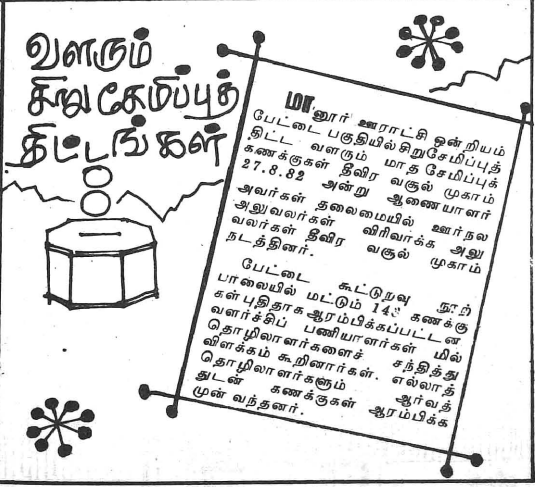 வளரும்
சிறுசேமிப்புத்
திட்டங்கள்
மானூர் ஊராட்சி ஒன்றியம்
பேட்டை பகுதியில் சிறுசேமிப்புத்
திட்ட வளரும் மாதசேமிப்புக்
கணக்குகள் தீவிர வசூல் முகாம்
27.8.82 அன்று ஆணையாளர்
அவர்கள் தலைமையில் ஊர்நல
அலுவலர்கள் விரிவாக்க அலு
வலர்கள் தீவிர வசூல் முகாம்
நடத்தினர்.
பேட்டை கூட்டுறவு நூற்
பாலையில் மட்டும் கணக்கு
கள் புதிதாக ஆரம்பிக்கப்பட்டன
வளர்ச்சிப் பணியாளர்கள் மில்
தொழிலாளர்களைச் சந்தித்து
விளக்கம் கூறினார்கள். எல்லாத்
தொழிலாளர்களும் ஆர்வத்
துடன் கணக்குகள் ஆரம்பிக்க
முன் வந்தனர்.